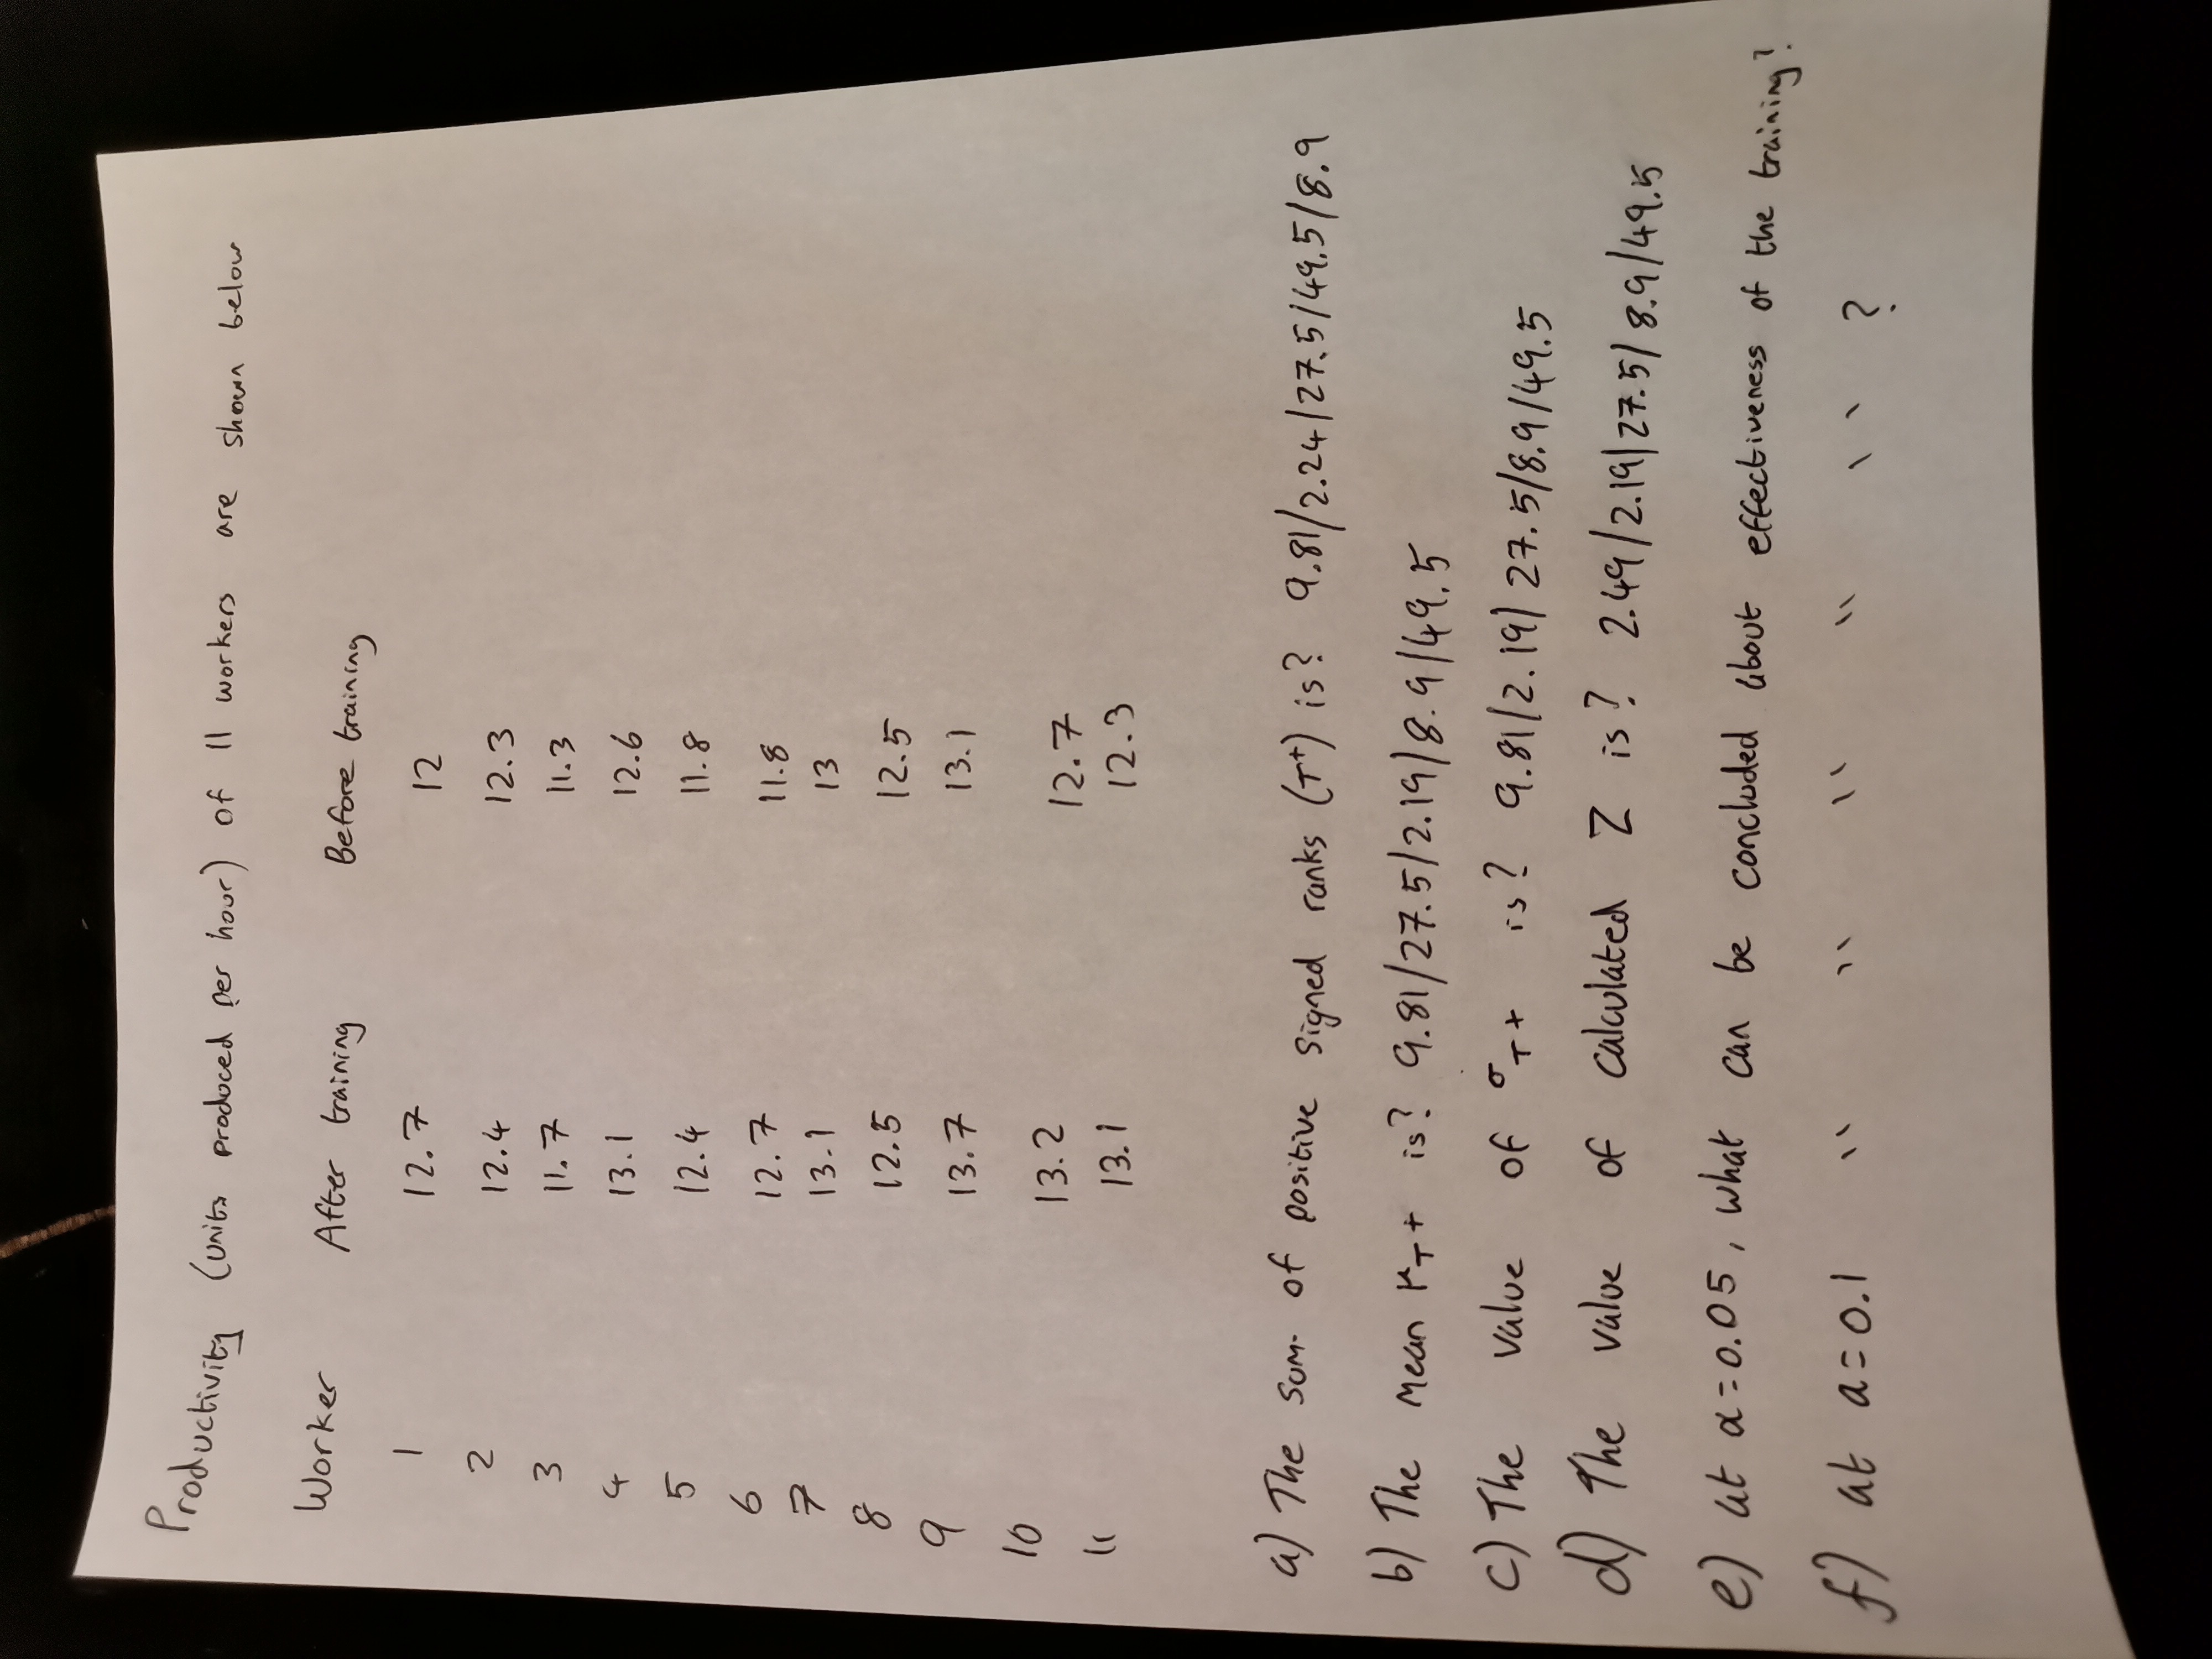 Productivity (units produced per hour) of 11 workers are shown below
Worker After training Before training
1 12.7 12
2 12.4 12.3
3 11.7 11.3
4 13.1 12.6
5 12.4 11.8
6 12.7 11.8
7 13.1 13
8 12.5 12.5
9 13.7 13.1
10 13.2 12.7
11 13.1 12.3
a) The sum of positive signed ranks (T+) is? 9.81/2.24/27.5/49.5/8.9
b) The mean μT+ is? 9.81/27.5/2.19/8.9/49.5
c) The value of σT+ is? 9.81/2.19/27.5/8.9/49.5
d) The value of calculated Z is? 2.49/2.19/27.5/8.9/49.5
e) at α=0.05, what can be concluded about effectiveness of the training?
f) at a=0.1 " " " " " " ?